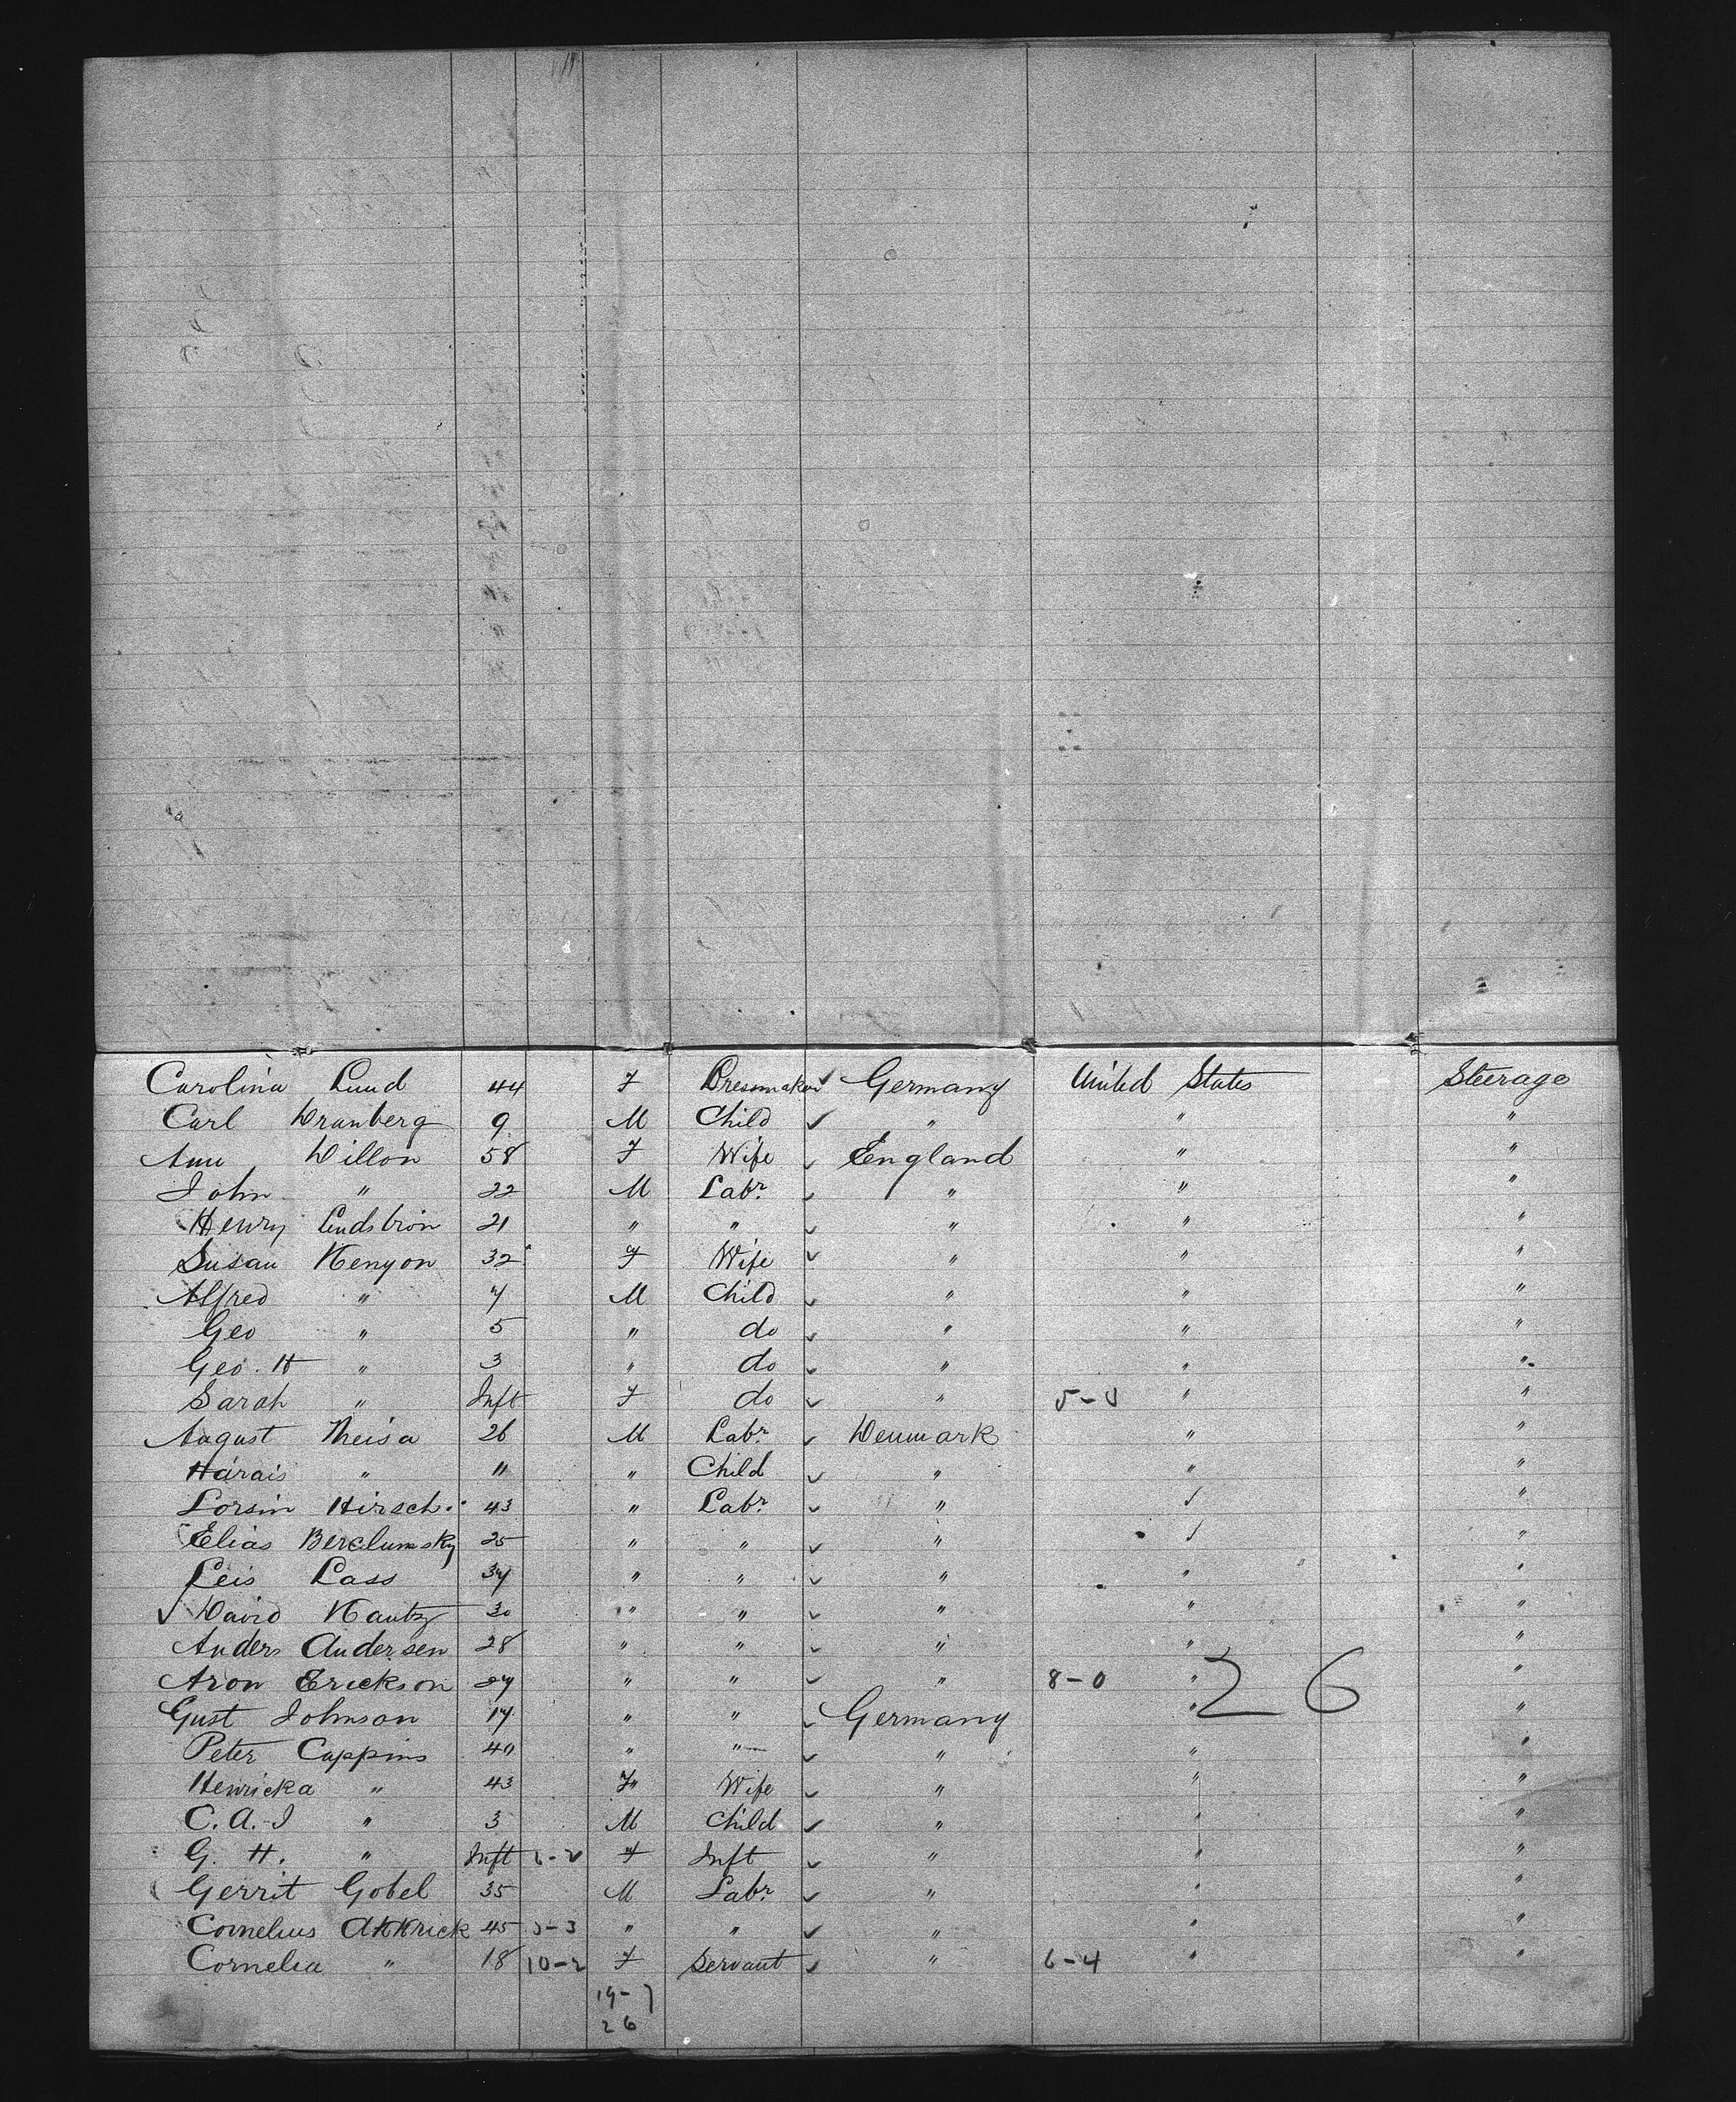 Carolina Lund 44 F Dressmaker ✓ Germany United States Steerage
Carl Dranberg 9 M Child ✓ " " "
Ann Dillon 58 F Wife ✓ England " "
John " 22 M Labr ✓ " " "
Henry 21 " " ✓ " " "
Susan Kenyon 32 F Wife ✓ " " "
Alfred " 7 M Child ✓ " " "
Geo " 5 " do ✓ " " "
Geo. H " 3 " do ✓ " " "
Sarah " Inft F do ✓ " " "
August Theisa 26 M Labr ✓ Denmark " "
Harais " 11 " Child ✓ " " "
Lorsin Hirsch 43 " Labr ✓ " " "
Elias Berclumsky 25 " " ✓ " " "
Leis Lass 34 " " ✓ " " "
✓ David Kautz 30 " " ✓ " " "
Anders Andersen 28 " " ✓ " " "
Aron Erickson 27 " " ✓ " 8-0 " "
Gust Johnson 17 " " ✓ Germany " 26 "
Peter Cappins 40 " " ✓ " " "
Henricka " 43 F Wife ✓ " " "
C. A. J " 3 M Child ✓ " " "
G. H. " Inft F Inft ✓ " " "
Gerrit Gobel 35 M Labr ✓ " " "
Cornelius 45 3-3 " " ✓ " " "
Cornelia " 18 10-2 F Servant ✓ " 6-4 " "
19-7
26